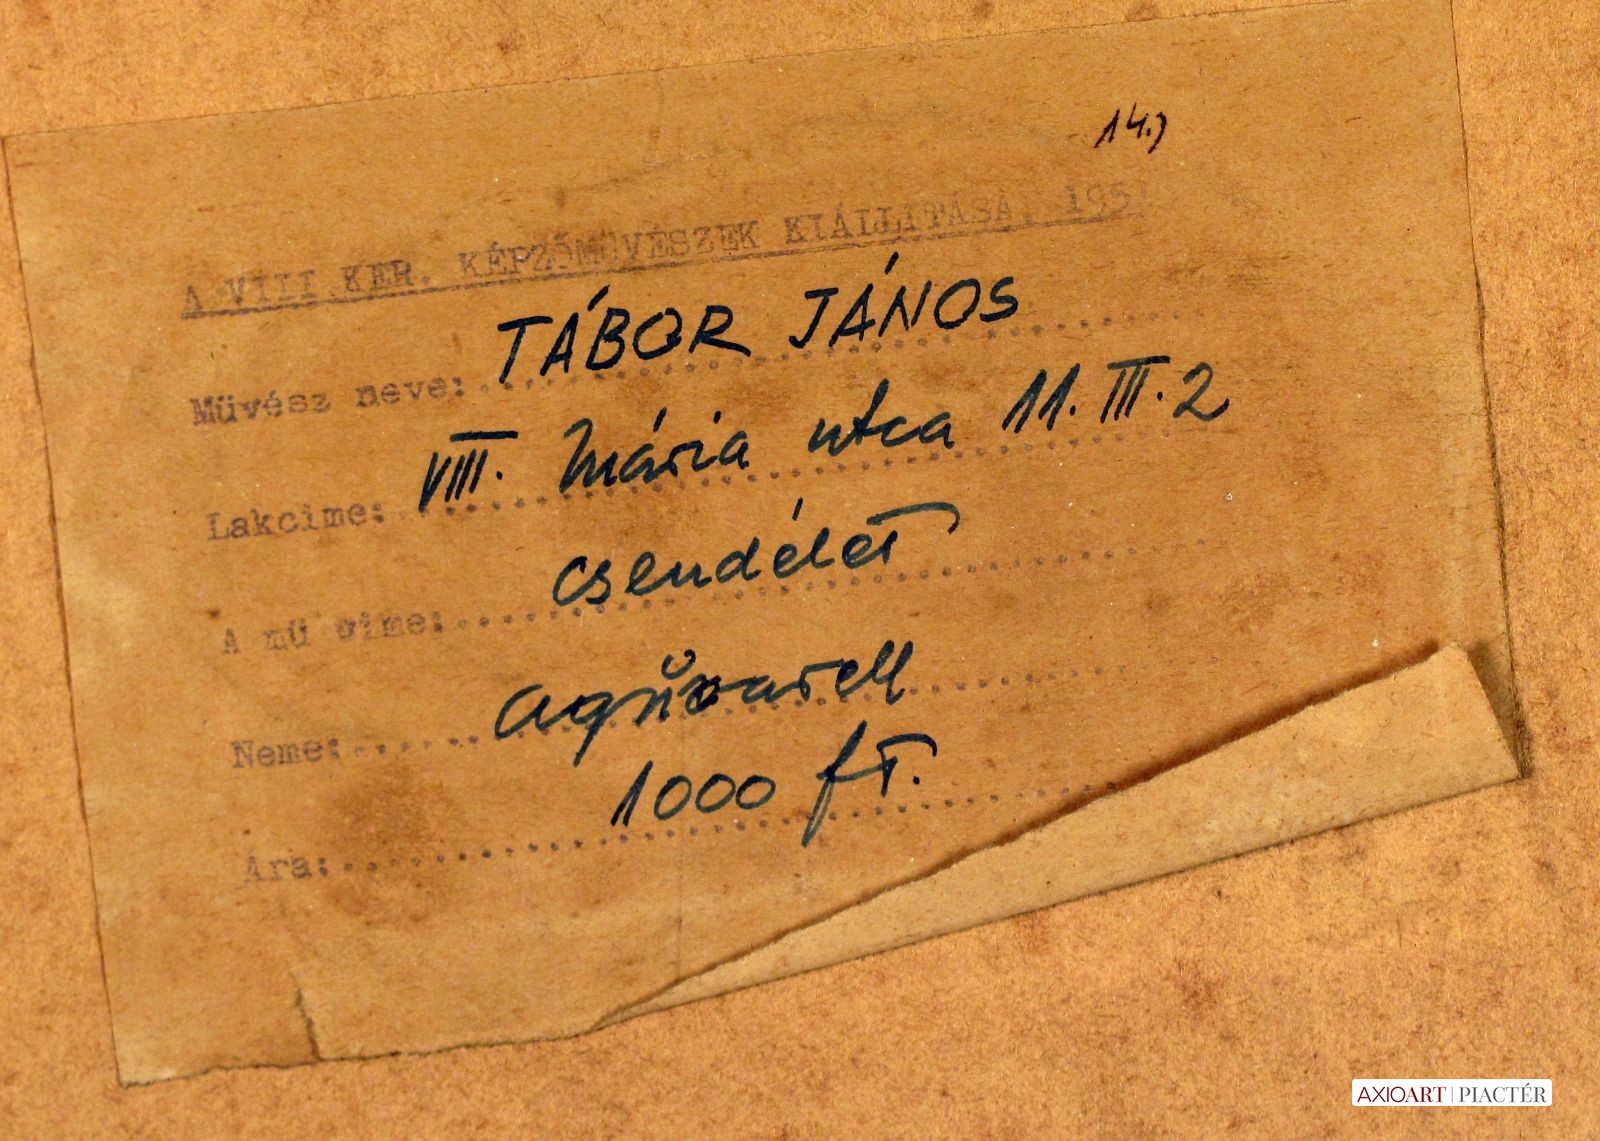 14.)
A VIII.KER. KÉPZŐMŰVÉSZEK KIÁLLITÁSA,
Müvész neve: TÁBOR JÁNOS
Lakcime: VIII. Mária utca 11. III. 2
A mü cime: csendélet
Neme: aqŭvarell
Ára: 1000 ft.
AXIOART | PIACTÉR